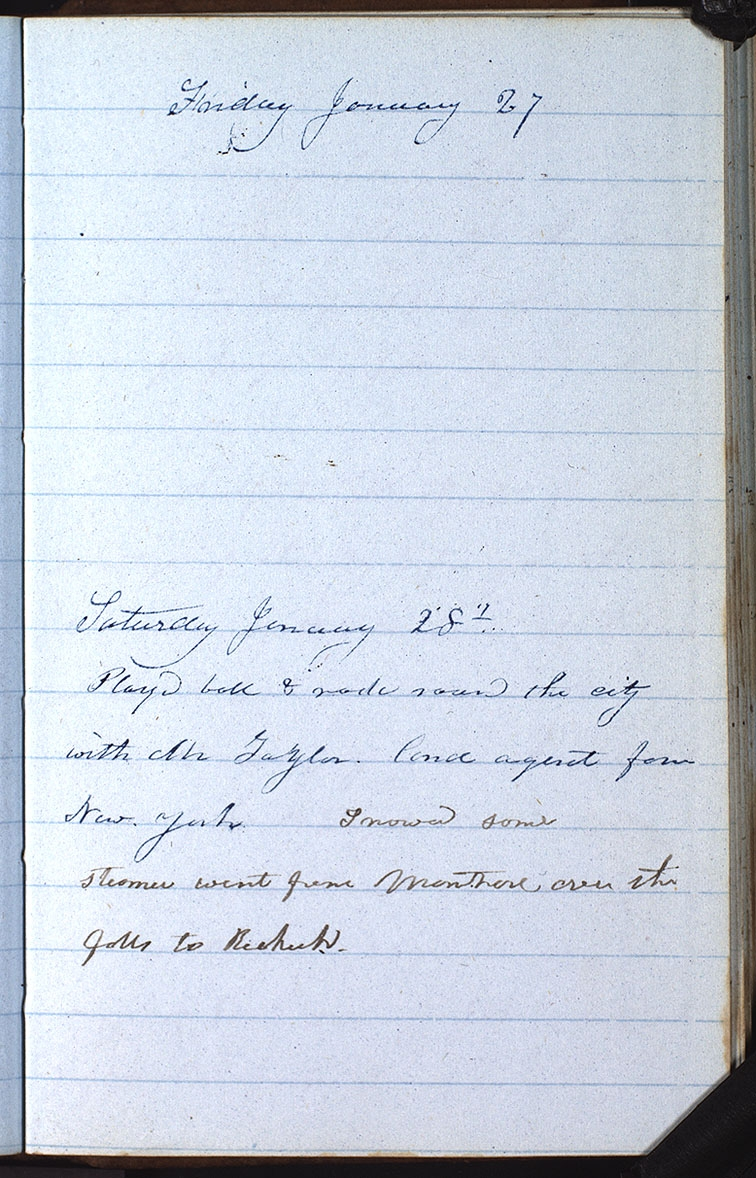 Friday January 27
Saturday January 28th
Play'd ball & rode round the city
with Mr Taylor. land agent from
New. York Snowed some
steamer went from Montreal over the
falls to